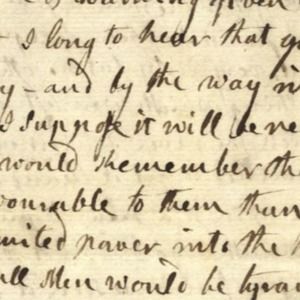 - I long to hear that y
y - and by the way in
I suppose it will be ne
would Remember the
vourable to them than
mited power into the h
all Men would be tyra